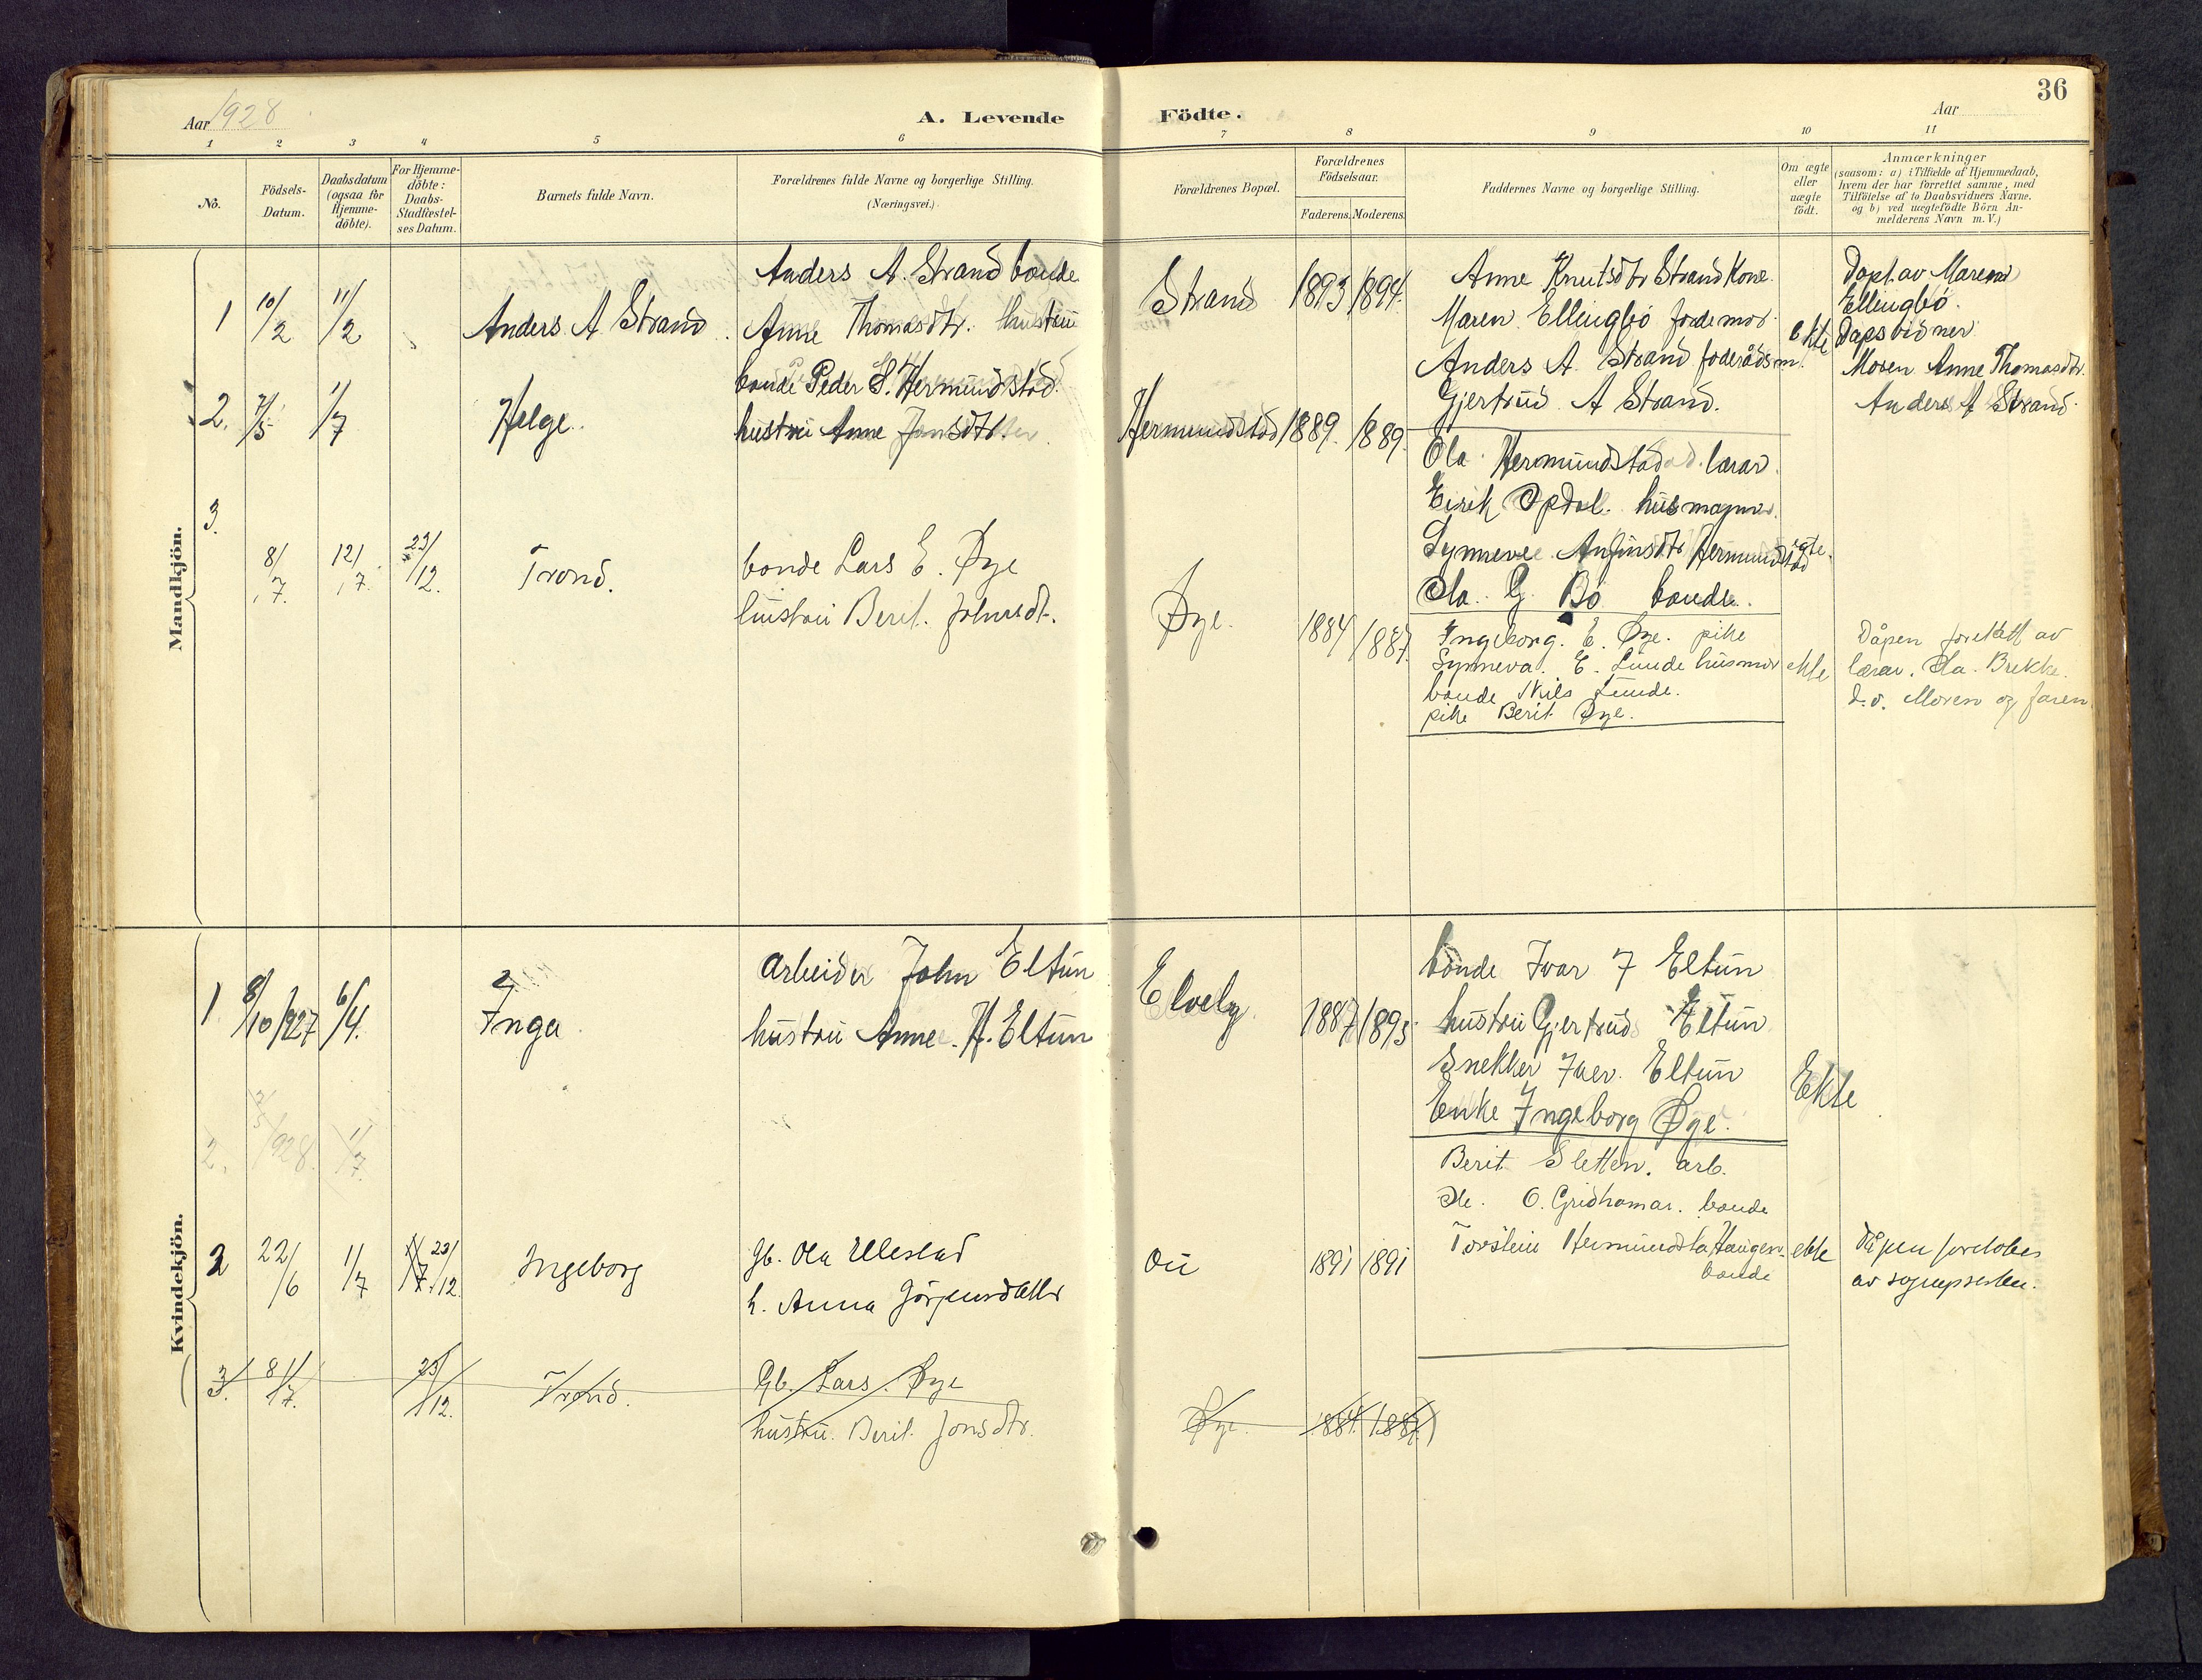 36
Aar 1928
A. Levende Födte.
Aar
1 2 3 4 5 6 7 8 9 10 11
No.
Födsels-
Datum.
Daabsdatum
(ogsaa for
Hjemme-
döbte).
For Hjemme-
döbte:
Daabs-
Stadfæstel-
ses Datum.
Barnets fulde Navn.
Forældrenes fulde Navne og borgerlige Stilling.
(Næringsvei.)
Forældrenes Bopæl.
Forældrenes
Födselsaar.
Faderens. Moderens.
Faddernes Navne og borgerlige Stilling.
Om ægte
eller
uægte
födt.
Anmærkninger
(saasom: a) i Tilfælde af Hjemmedaab,
hvem der har forrettet samme, med
Tilföielse af to Daabsvidners Navne,
og b) ved uægtefödte Börn An-
melderens Navn m. V.)
Mandkjön.
1 10/2 11/2 Anders A Strand
Anders A. Strand bonde
Anne Thomasdtr. hustru
Strand 1893 1894.
Anne Knutsdtr Strand Kone.
Maren Ellingbö jordemor
Anders A. Strand foderådsm.
Gjertrud A Strand.
ekte
Döpt av Maren
Ellingbö.
Dapsvidner
Moren Anne Thomasdtr.
Anders A Strand
2. 7/5 1/7 Helge.
bonde Peder S. Hermundstad
hustru Anne Jonsdtr.
Hermundstad 1889. 1889.
Ola Hermundstad lærar.
Eirik Opdal. husmann.
Synneve Anfinsdtr Hermundstad
Ola G. Bö bonde.
egte.
3. 8/7. 12/7. 23/12. Trond.
bonde Lars E. Øye
hustru Berit. Johnsdt.
Øye. 1884 1887.
Ingeborg. E. Øye. pike
Synneva. E. Lunde husmor
bonde Nils Lunde.
pike Berit Øye.
ekte
Dåpen forettatt av
lærar. Ola. Brekke.
d.v. Moren og faren
Kvindekjön.
1 8/10 1927 6/4. Inga
2
arbeider John Eltun
hustru Anne. H. Eltun
Elvely 1887 1893
bonde Ivar 7 Eltun
hustru Gjertrud Eltun
Snekker Iver. Eltun
Enke Ingeborg Øye.
Ekte
2. 7/5 1928. 1/7.
2 22/6 1/7 1/7 23/12. Ingeborg
Gb. Ola Ellestad
h. Anna Görjensdatter
1891 1891
Berit Sletten. arb.
Ole. O. Gridhamar. bonde
Torstein Hermundsta Haugen.
bonde
ekte
Dåpen
av sogneprsten.
3. 8/7. 23/12. Trond.
Gb. Lars. Øye
hustru. Berit Jonsdtr.
Øye. 1884. 1887.